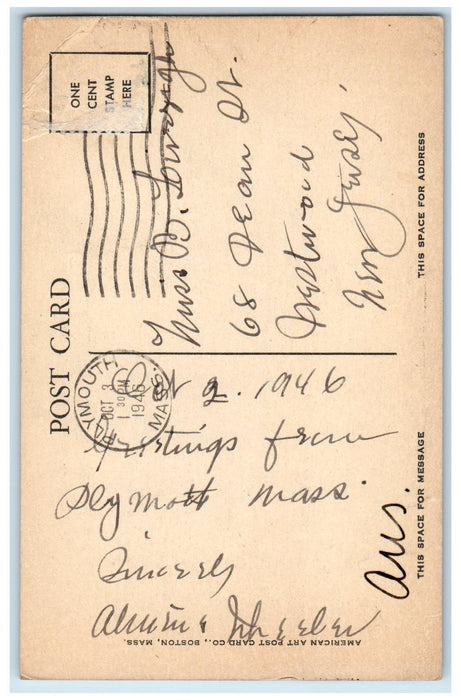 POST CARD
ONE
CENT
STAMP
HERE
PLYMOUTH
MASS.
OCT 3
1 30 PM
1946
Oct 2. 1946
Greetings from
Plymott Mass.
Sincerely
Wheeler
Ans.
THIS SPACE FOR MESSAGE
Miss B.
68 Dean St.
Westwood
New Jersey.
THIS SPACE FOR ADDRESS
AMERICAN ART POST CARD CO., BOSTON, MASS.